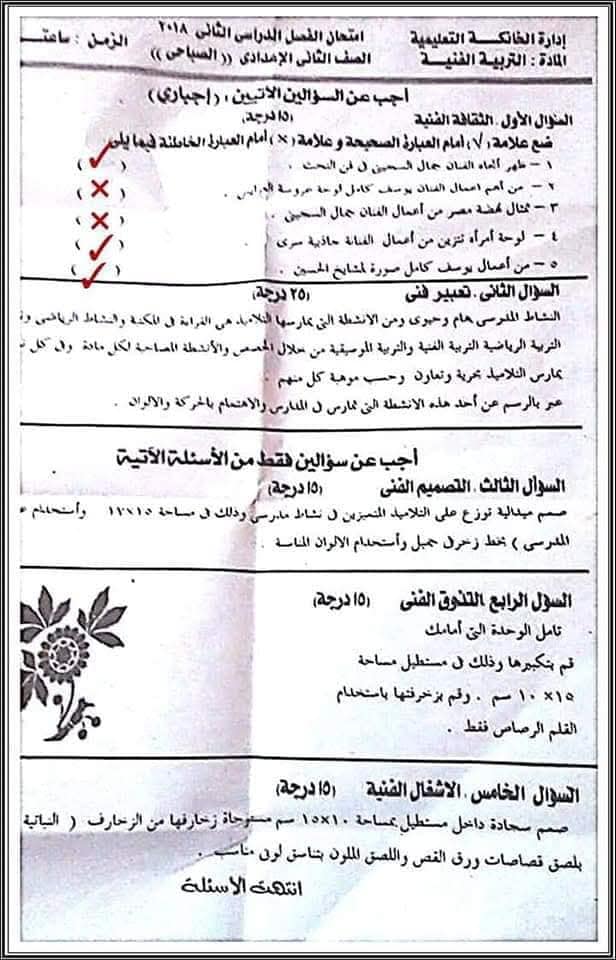 إدارة الخانكة التعليمية امتحان الفصل الدراسى الثانى ٢٠١٨ الزمن : ساعتـ
المادة : التربية الفنية الصف الثانى الإعدادى (( الصباحى ))
أجب عن السؤالين الآتيين : (إجبارى)
السؤال الأول . الثقافة الفنية (١٥ درجة)
ضع علامة (√) أمام العبارة الصحيحة و علامة (×) أمام العبارة الخاطئة فيما يلى
١ – ظهر أتجاه الفنان جمال السجينى فى فن النحت . ( ✓ )
٢ – من أهم اعمال الفنان يوسف كامل لوحة عروسة . ( × )
٣ – تمثال نهضة مصر من أعمال الفنان جمال السجينى . ( × )
٤ – لوحة أمرأه تتزين من أعمال الفنانة جاذبية سرى ( ✓ )
٥ – من أعمال يوسف كامل صورة لمشايخ الحسين . ( ✓ )
السؤال الثانى . تعبير فنى (٢٥ درجة)
النشاط المدرسى هام وحيوى ومن الانشطة التى يمارسها التلاميذ هى القراءة فى المكتبة والنشاط الرياضى
التربية الرياضية التربية الفنية والتربية الموسيقية من خلال الحصص والأنشطة المصاحبة لكل مادة وفى كل
يمارس التلاميذ بحرية وتعاون وحسب موهبة كل منهم .
عبر بالرسم عن أحد هذه الانشطة التى تمارس فى المدارس والاهتمام بالحركة والالوان .
أجب عن سؤالين فقط من الأسئلة الآتية
السؤال الثالث . التصميم الفنى (١٥ درجة)
صمم ميدالية توزع على التلاميذ المتميزين فى نشاط مدرسى وذلك فى مساحة ١٥×١٢ وأستخدام
المدرسى ) بخط زخرفى جميل وأستخدام الالوان المناسبة .
السؤل الرابع .التذوق الفنى (١٥ درجة)
تامل الوحدة التى أمامك
قم بتكبيرها وذلك فى مستطيل مساحة
١٥ × ١٠ سم . وقم بزخرفتها باستخدام
القلم الرصاص فقط .
السؤال الخامس . الاشغال الفنية (١٥ درجة)
صمم سجادة داخل مستطيل بمساحة ١٠×١٥ سم مستوحاة زخارفها من الزخارف ( النباتية
بلصق قصاصات ورق القص واللصق الملون بتناسق لونى مناسب .
انتهت الأسئلة